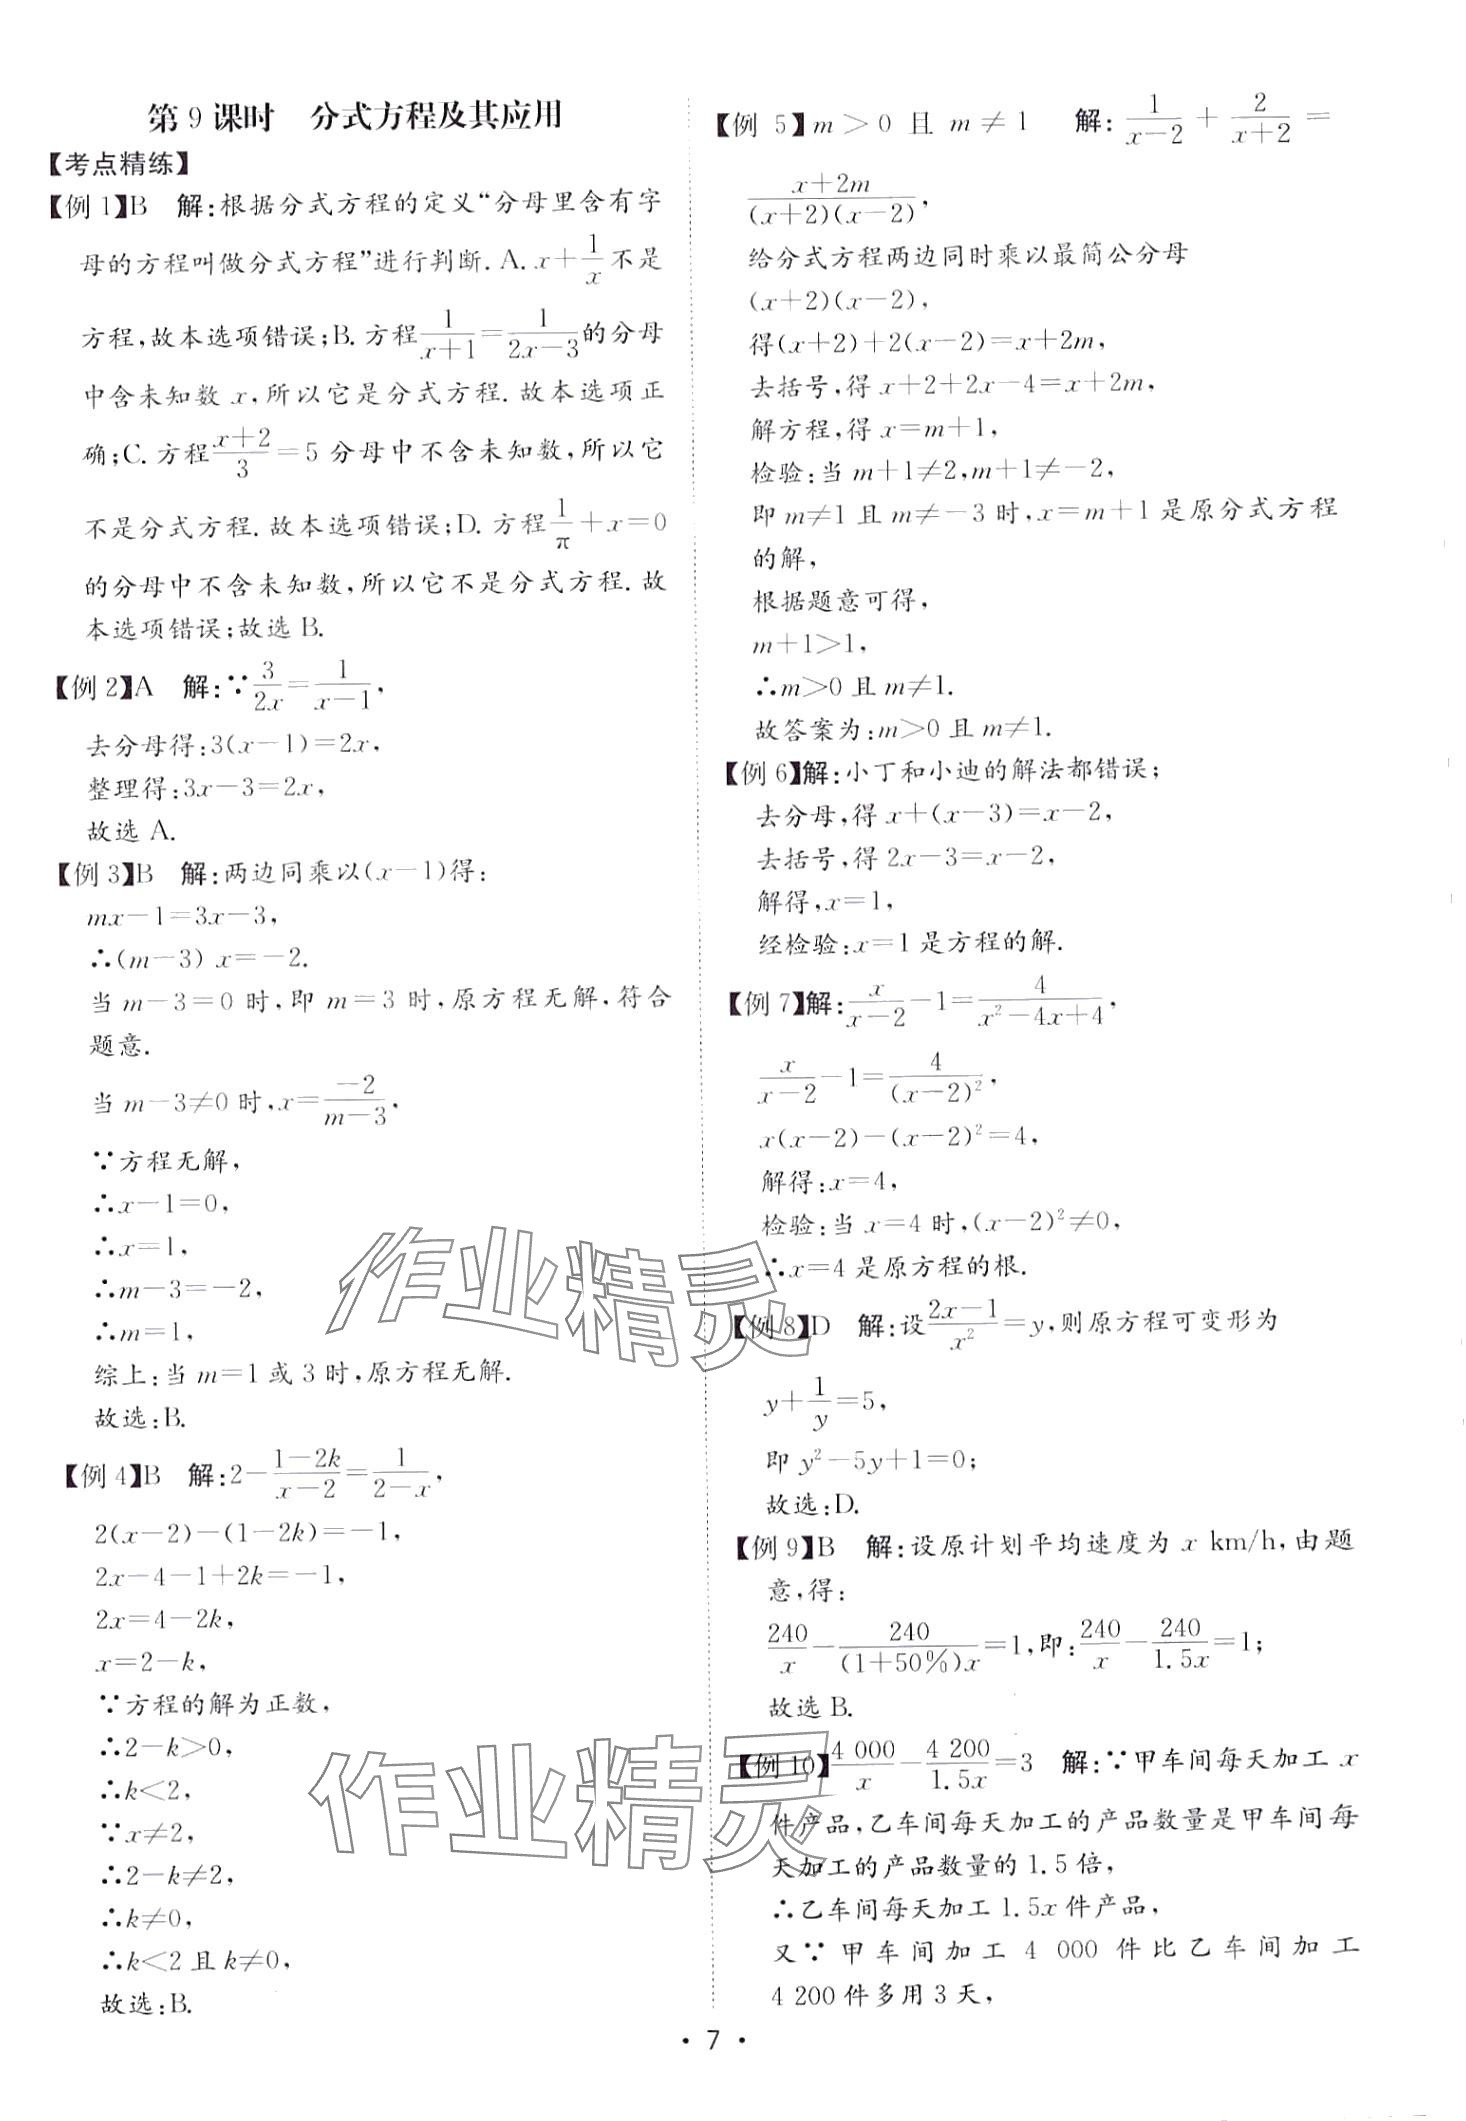 第9课时 分式方程及其应用
【考点精练】
【例1】B 解:根据分式方程的定义“分母里含有字
母的方程叫做分式方程”进行判断. A. x+1/x不是
方程,故本选项错误;B. 方程1/(x+1)=1/(2x-3)的分母
中含未知数 x,所以它是分式方程. 故本选项正
确;C. 方程(x+2)/3=5 分母中不含未知数,所以它
不是分式方程. 故本选项错误;D. 方程1/π+x=0
的分母中不含未知数,所以它不是分式方程. 故
本选项错误;故选 B.
【例2】A 解:∵3/(2x)=1/(x-1),
去分母得:3(x-1)=2x,
整理得:3x-3=2x,
故选 A.
【例3】B 解:两边同乘以(x-1)得:
mx-1=3x-3,
∴(m-3) x=-2.
当 m-3=0 时,即 m=3 时,原方程无解,符合
题意.
当 m-3≠0 时,x=(-2)/(m-3),
∵方程无解,
∴x-1=0,
∴x=1,
∴m-3=-2,
∴m=1,
综上:当 m=1 或 3 时,原方程无解.
故选:B.
【例4】B 解:2-(1-2k)/(x-2)=1/(2-x),
2(x-2)-(1-2k)=-1,
2x-4-1+2k=-1,
2x=4-2k,
x=2-k,
∵方程的解为正数,
∴2-k>0,
∴k<2,
∵x≠2,
∴2-k≠2,
∴k≠0,
∴k<2 且 k≠0,
故选:B.
【例5】m>0 且 m≠1 解:1/(x-2)+2/(x+2)=
(x+2m)/((x+2)(x-2)),
给分式方程两边同时乘以最简公分母
(x+2)(x-2),
得(x+2)+2(x-2)=x+2m,
去括号,得 x+2+2x-4=x+2m,
解方程,得 x=m+1,
检验:当 m+1≠2,m+1≠-2,
即 m≠1 且 m≠-3 时,x=m+1 是原分式方程
的解,
根据题意可得,
m+1>1,
∴m>0 且 m≠1.
故答案为:m>0 且 m≠1.
【例6】解:小丁和小迪的解法都错误;
去分母,得 x+(x-3)=x-2,
去括号,得 2x-3=x-2,
解得,x=1,
经检验:x=1 是方程的解.
【例7】解:x/(x-2)-1=4/(x²-4x+4),
x/(x-2)-1=4/(x-2)²,
x(x-2)-(x-2)²=4,
解得:x=4,
检验:当 x=4 时,(x-2)²≠0,
∴x=4 是原方程的根.
【例8】D 解:设(2x-1)/x²=y,则原方程可变形为
y+1/y=5,
即 y²-5y+1=0;
故选:D.
【例9】B 解:设原计划平均速度为 x km/h,由题
意,得:
240/x-240/((1+50%)x)=1,即:240/x-240/(1.5x)=1;
故选 B.
【例10】4 000/x-4 200/(1.5x)=3 解:∵甲车间每天加工 x
件产品,乙车间每天加工的产品数量是甲车间每
天加工的产品数量的 1.5 倍,
∴乙车间每天加工 1.5x 件产品,
又∵甲车间加工 4 000 件比乙车间加工
4 200 件多用 3 天,
作业精灵
作业精灵
• 7 •